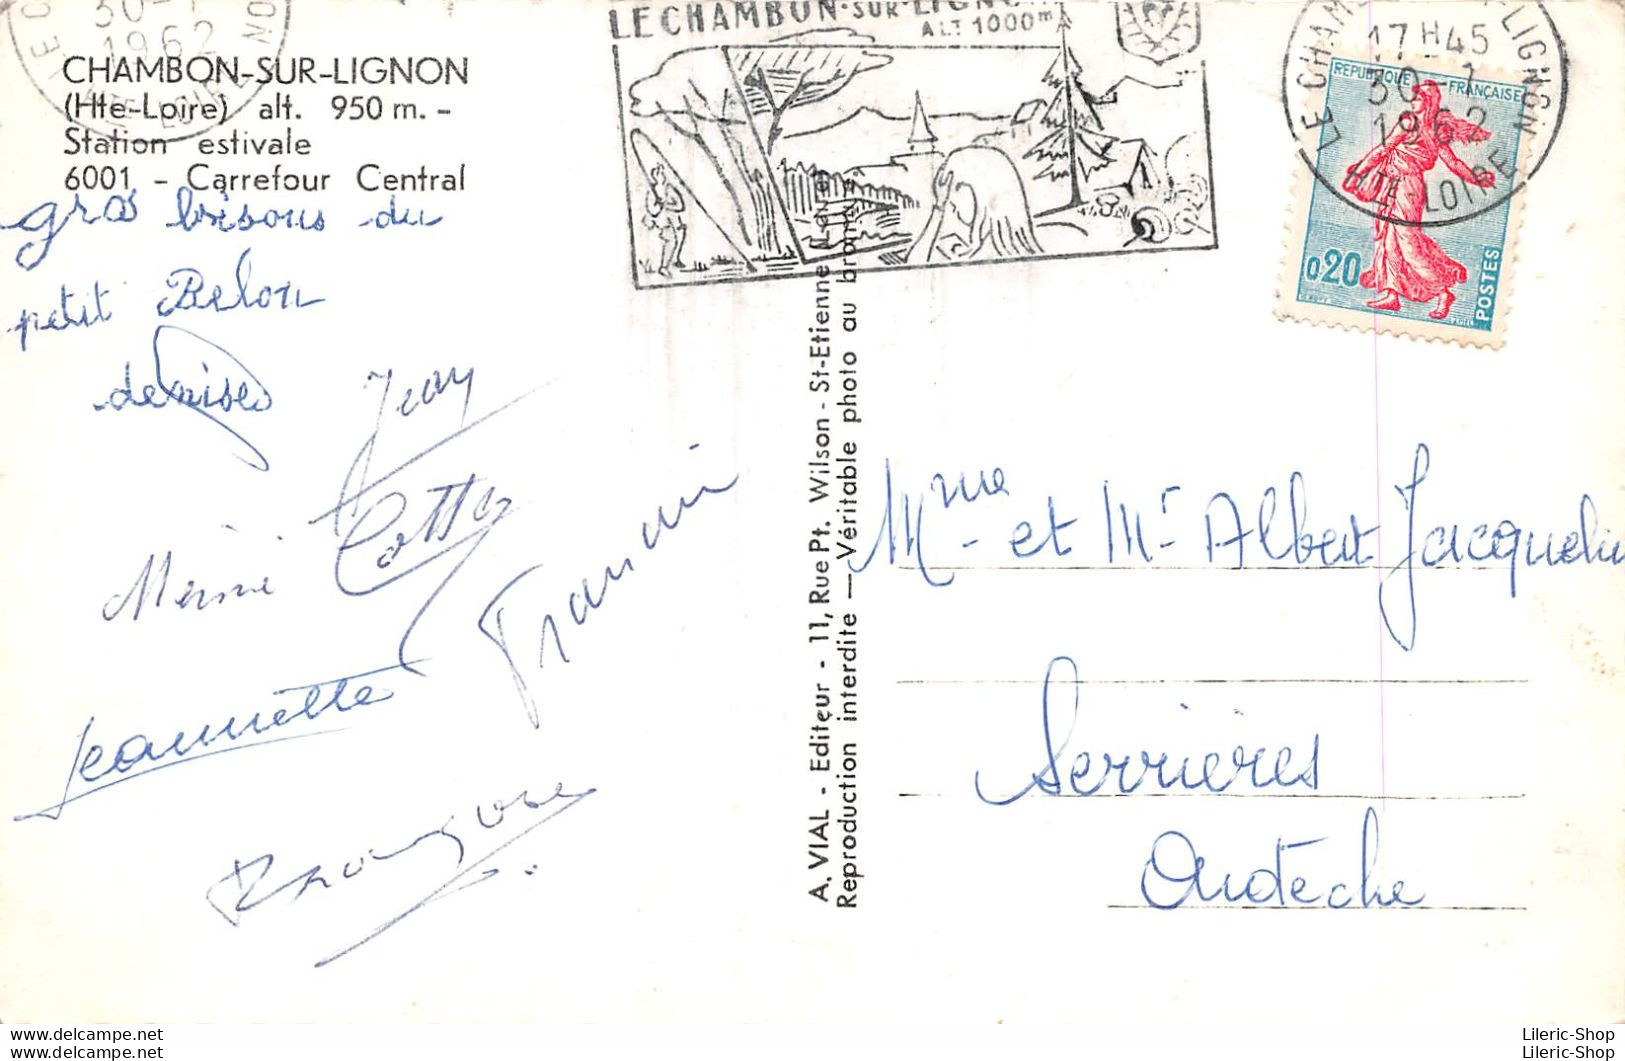 CHAMBON-SUR-LIGNON
(Hte-Loire) alt. 950 m. -
Station estivale
6001 - Carrefour Central
gros bisous du
petit Belon
denise
Jean
Mémé
Jeannette
A. VIAL - Editeur - 11, Rue Pt. Wilson - St-Etienne
Reproduction interdite — Véritable photo au bromure
LE CHAMBON-SUR-LIGNON
ALT 1000m
LE CHAM LIGNON
17 H 45
30-7
1962
HTE-LOIRE
30-7
1962
REPUBLIQUE FRANÇAISE
0,20
POSTES
Mme et Mr Albert Jacquelin
Serrières
Ardèche
www.delcampe.net
www.delcampe.net
Lileric-Shop
Lileric-Shop